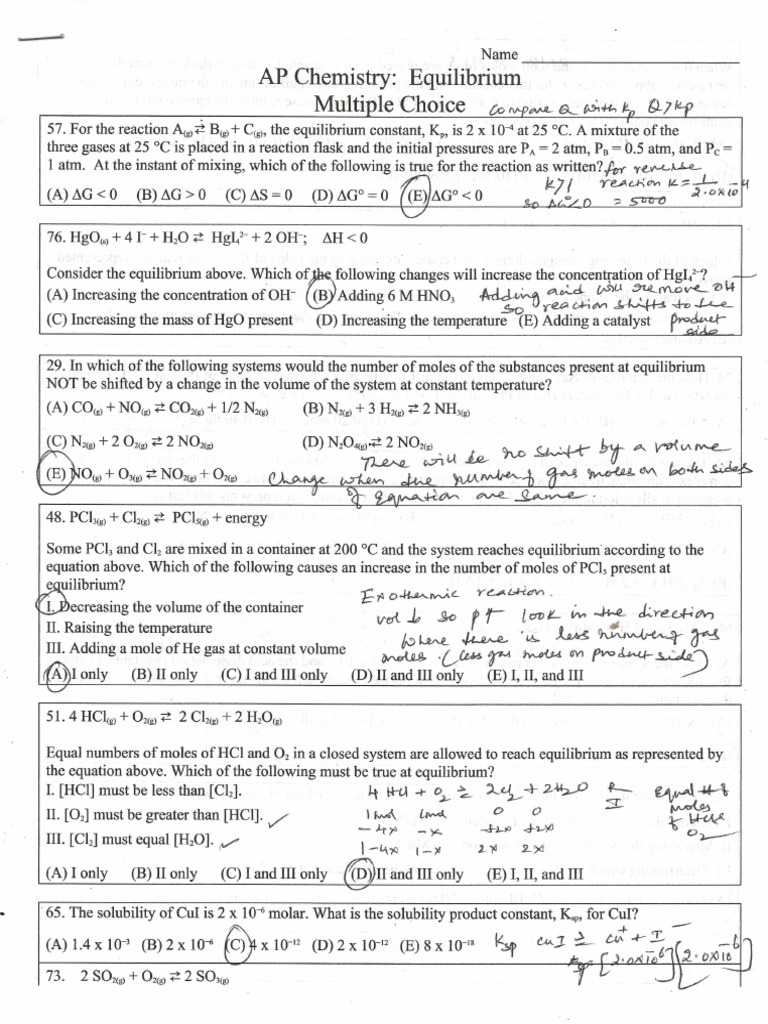 Name
AP Chemistry: Equilibrium
Multiple Choice
compare Q with Kp Q>Kp
57. For the reaction A(g) ⇄ B(g) + C(g), the equilibrium constant, Kp, is 2 x 10⁻⁴ at 25 °C. A mixture of the
three gases at 25 °C is placed in a reaction flask and the initial pressures are PA = 2 atm, PB = 0.5 atm, and PC =
1 atm. At the instant of mixing, which of the following is true for the reaction as written? for reverse
K>1 reaction K = 1/2.0x10⁻⁴
(A) ΔG < 0 (B) ΔG > 0 (C) ΔS = 0 (D) ΔG° = 0 (E) ΔG° < 0 so ΔG°<0 = 5000
76. HgO(s) + 4 I⁻ + H₂O ⇄ HgI₄²⁻ + 2 OH⁻; ΔH < 0
Consider the equilibrium above. Which of the following changes will increase the concentration of HgI₄²⁻?
(A) Increasing the concentration of OH⁻ (B) Adding 6 M HNO₃ Adding acid will remove OH⁻
so reaction shifts to the
(C) Increasing the mass of HgO present (D) Increasing the temperature (E) Adding a catalyst product
side
29. In which of the following systems would the number of moles of the substances present at equilibrium
NOT be shifted by a change in the volume of the system at constant temperature?
(A) CO(g) + NO(g) ⇄ CO₂(g) + 1/2 N₂(g) (B) N₂(g) + 3 H₂(g) ⇄ 2 NH₃(g)
(C) N₂(g) + 2 O₂(g) ⇄ 2 NO₂(g) (D) N₂O₄(g) ⇄ 2 NO₂(g)
There will be no shift by a volume
(E) NO(g) + O₃(g) ⇄ NO₂(g) + O₂(g) change when the number gas moles on both sides
of equation are same
48. PCl₃(g) + Cl₂(g) ⇄ PCl₅(g) + energy
Some PCl₃ and Cl₂ are mixed in a container at 200 °C and the system reaches equilibrium according to the
equation above. Which of the following causes an increase in the number of moles of PCl₅ present at
equilibrium?
Exothermic reaction.
I. Decreasing the volume of the container vol ↓ so P↑ look in the direction
II. Raising the temperature where there is less number gas
III. Adding a mole of He gas at constant volume moles. (less gas moles on product side)
(A) I only (B) II only (C) I and III only (D) II and III only (E) I, II, and III
51. 4 HCl(g) + O₂(g) ⇄ 2 Cl₂(g) + 2 H₂O(g)
Equal numbers of moles of HCl and O₂ in a closed system are allowed to reach equilibrium as represented by
the equation above. Which of the following must be true at equilibrium?
I. [HCl] must be less than [Cl₂]. 4 HCl + O₂ ⇄ 2Cl₂ + 2H₂O R Equal # of
II. [O₂] must be greater than [HCl]. ✓ 1mol 1mol 0 0 I moles of HCl
III. [Cl₂] must equal [H₂O]. ✓ -4x -x +2x +2x O₂
1-4x 1-x 2x 2x
(A) I only (B) II only (C) I and III only (D) II and III only (E) I, II, and III
65. The solubility of CuI is 2 x 10⁻⁶ molar. What is the solubility product constant, Ksp, for CuI?
(A) 1.4 x 10⁻³ (B) 2 x 10⁻⁶ (C) 4 x 10⁻¹² (D) 2 x 10⁻¹² (E) 8 x 10⁻¹⁸ Ksp CuI ⇄ Cu⁺ + I⁻
Ksp=[2.0x10⁻⁶][2.0x10⁻⁶]
73. 2 SO₂(g) + O₂(g) ⇄ 2 SO₃(g)